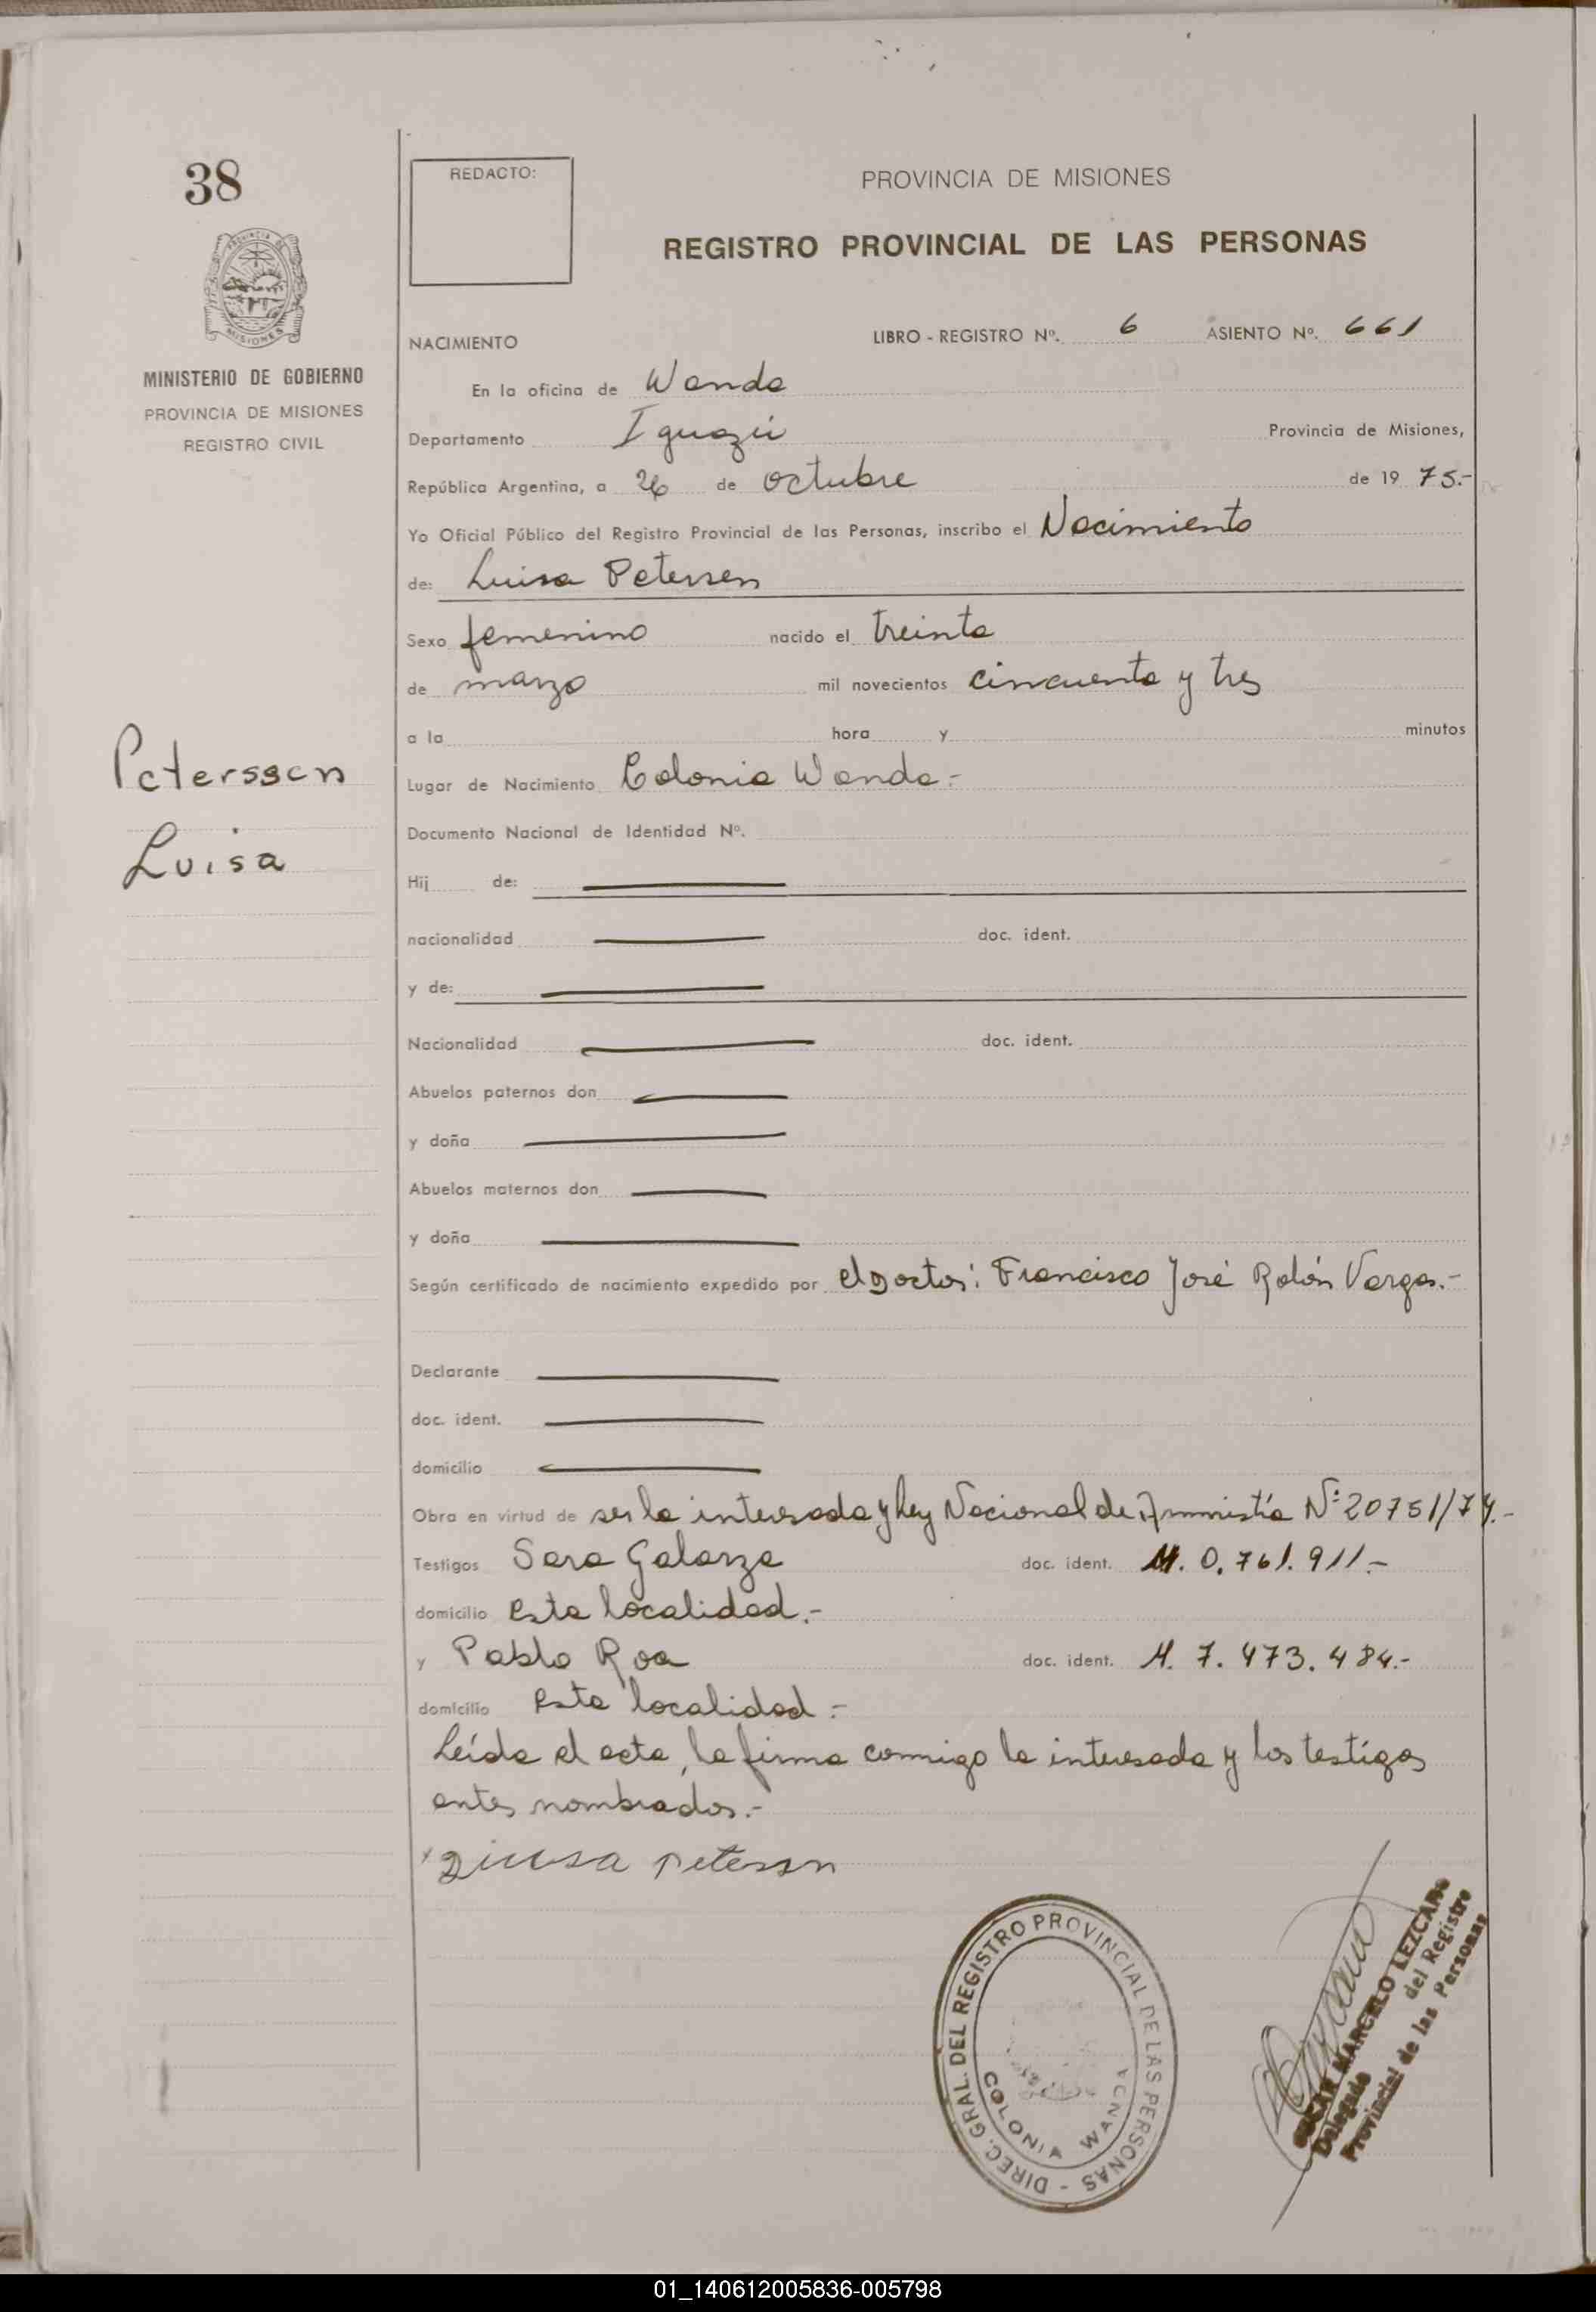 38
REDACTO:
PROVINCIA DE MISIONES
REGISTRO PROVINCIAL DE LAS PERSONAS
PROVINCIA DE MISIONES
MINISTERIO DE GOBIERNO
PROVINCIA DE MISIONES
REGISTRO CIVIL
NACIMIENTO LIBRO - REGISTRO Nº. 6 ASIENTO Nº. 661
En la oficina de Wanda
Departamento Iguazú Provincia de Misiones,
República Argentina, a 26 de octubre de 19 75.-
Yo Oficial Público del Registro Provincial de las Personas, inscribo el Nacimiento
de: Luisa Petersen
Sexo femenino nacido el treinta
de marzo mil novecientos cincuenta y tres
a la hora y minutos
Peterssen
Luisa
Lugar de Nacimiento Colonia Wanda.-
Documento Nacional de Identidad Nº.
Hij de:
nacionalidad doc. ident.
y de:
Nacionalidad doc. ident.
Abuelos paternos don
y doña
Abuelos maternos don
y doña
Según certificado de nacimiento expedido por el Doctor: Francisco José Rolón Vargas.-
Declarante
doc. ident.
domicilio
Obra en virtud de ser la interesada y Ley Nacional de Amnistía Nº 20751/74.-
Testigos Sara Galarza doc. ident. M. 0.761.911.-
domicilio esta localidad.-
y Pablo Roa doc. ident. M. 7.473.484.-
domicilio esta localidad.-
Leída el acta, la firma conmigo la interesada y los testigos
antes nombrados.-
Luisa petersn
DIREC. GRAL. DEL REGISTRO PROVINCIAL DE LAS PERSONAS -
COLONIA WANDA
OSCAR MARCELO LEZCANO
Delegado del Registro
Provincial de las Personas
01_140612005836-005798